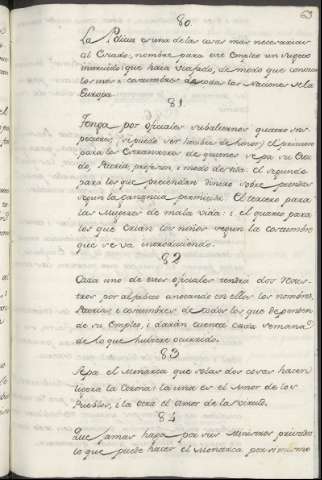 63
80.
La Policia es una de las cosas mas necesarias
al Estado, nombre para este Empleo un sugeto
instruido i que haia viajado, de modo que conosca
los usos i costumbres de todas las Naciones de la
Europa.
81.
Tenga por oficiales subalternos quatro Ins-
pectores, (si puede ser hombres de honor) el primero
para los Estrangeros de quienes sepa su Esta-
do, Patria, profesion, i modo de vida. el segundo
para los que prestan dinero sobre prendas
segun la ganancia permitida. El tercero para
las Mugeres de mala vida: i el quarto para
los que Crian los niños segun la costumbre
que se va introduciendo.
82
Cada uno de estos oficiales tendrá dos Regis-
tros por alfabeto anotando en ellos los nombres,
Patrias, i costumbres de todos los que dependen
de su Empleo, i darán cuenta cada semana
de lo que hubiere ocurrido.
83
Sepa el Monarca que solas dos cosas hacen
ligera la Corona: la una es el Amor de los
Pueblos, i la otra el amor de la virtud.
84
Que jamas haga por sus Ministros privados
lo que puede hacer el Monarca por si mismo